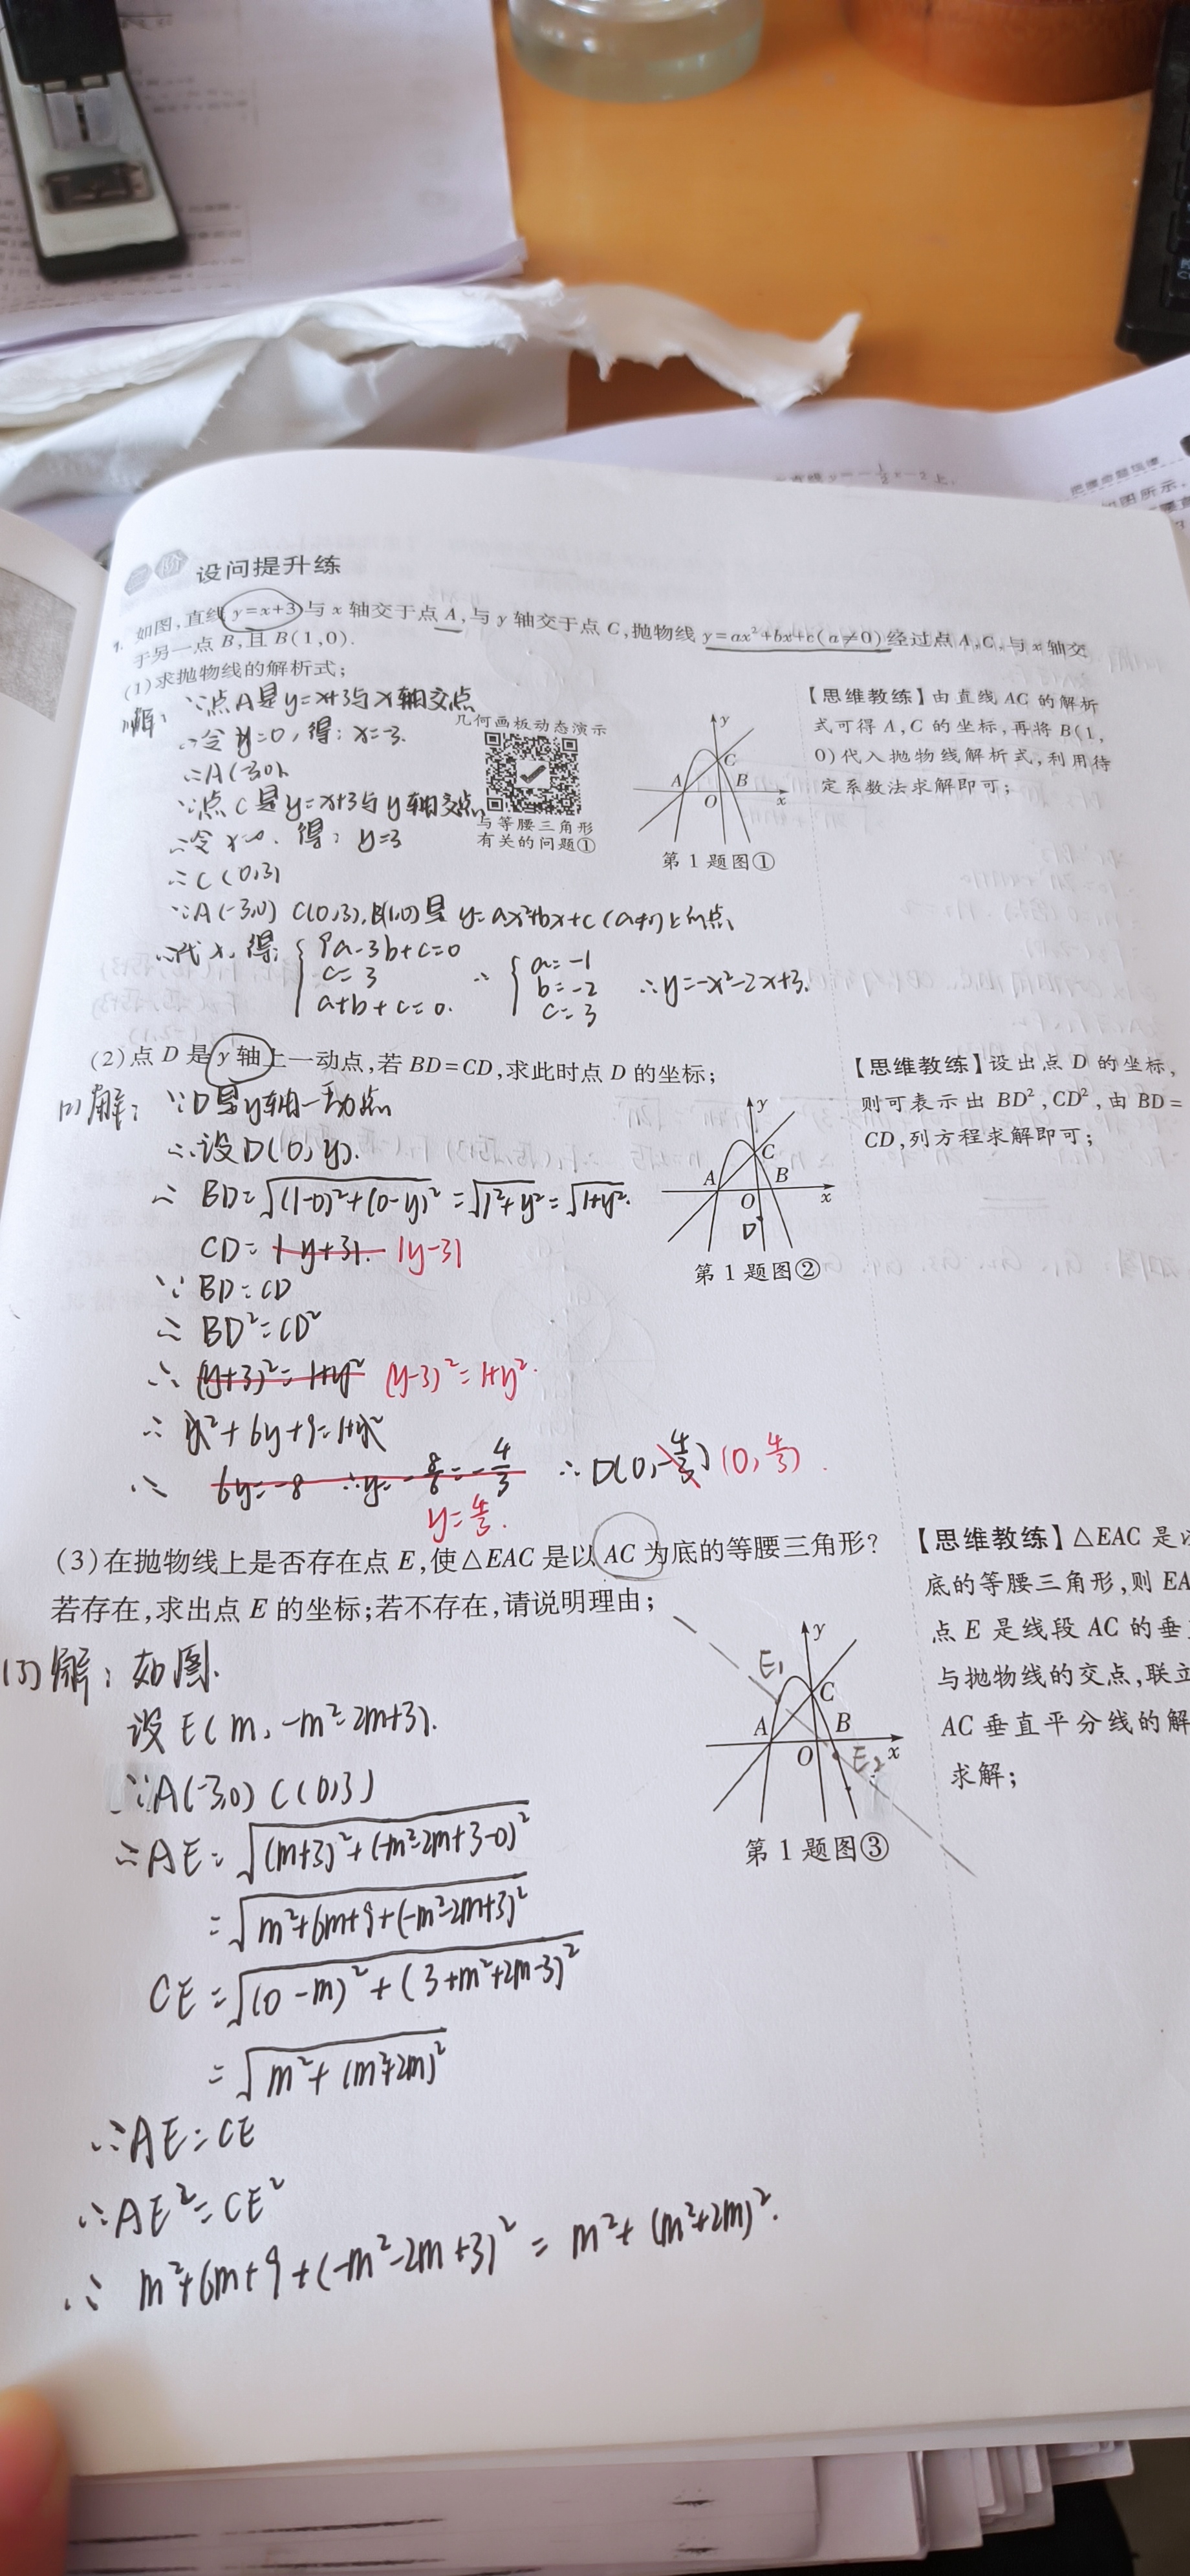 设问提升练
1. 如图,直线 y=x+3 与 x 轴交于点 A,与 y 轴交于点 C,抛物线 y=ax²+bx+c(a≠0)经过点 A,C,与 x 轴交
于另一点 B,且 B(1,0).
(1)求抛物线的解析式;
(1)解: ∵点A是y=x+3与x轴交点
∴令y=0,得:x=-3.
∴A(-3,0).
∵点C是y=x+3与y轴交点
∴令x=0. 得: y=3
∴C(0,3)
∵A(-3,0) C(0,3),B(1,0)是 y=ax²+bx+c(a≠0)上的点
∴代入,得: { 9a-3b+c=0
c=3
a+b+c=0.
∴ { a=-1
b=-2
c=3
∴y=-x²-2x+3.
几何画板动态演示
与等腰三角形
有关的问题①
y
C
A
B
O
x
第1题图①
【思维教练】由直线 AC 的解析
式可得 A,C 的坐标,再将 B(1,
0)代入抛物线解析式,利用待
定系数法求解即可;
(2)点 D 是 y 轴上一动点,若 BD=CD,求此时点 D 的坐标;
解: ∵D是y轴一动点
∴设D(0,y).
∴ BD=√(1-0)²+(0-y)²=√1²+y²=√1+y².
CD= |y+3|. |y-3|
∵ BD=CD
∴ BD²=CD²
∴ (y+3)²=1+y² (y-3)²=1+y².
∴ y²+6y+9=1+y²
∴ 6y=-8 ∴y=-8/6=-4/3 ∴D(0,-4/3) (0,4/3).
y=4/3.
y
C
A
B
O
x
D
第1题图②
【思维教练】设出点 D 的坐标,
则可表示出 BD²,CD²,由 BD=
CD,列方程求解即可;
(3)在抛物线上是否存在点 E,使△EAC 是以 AC 为底的等腰三角形?
若存在,求出点 E 的坐标;若不存在,请说明理由;
(3)解: 如图.
设E(m,-m²-2m+3).
∵A(-3,0) C(0,3)
∴AE=√(m+3)²+(-m²-2m+3-0)²
=√m²+6m+9+(-m²-2m+3)²
CE=√(0-m)²+(3+m²+2m-3)²
=√m²+(m²+2m)²
∵AE=CE
∴AE²=CE²
∴ m²+6m+9+(-m²-2m+3)²=m²+(m²+2m)².
y
E₁
C
A
B
O
E₂
x
第1题图③
【思维教练】△EAC 是
底的等腰三角形,则 EA
点 E 是线段 AC 的垂
与抛物线的交点,联立
AC 垂直平分线的解
求解;